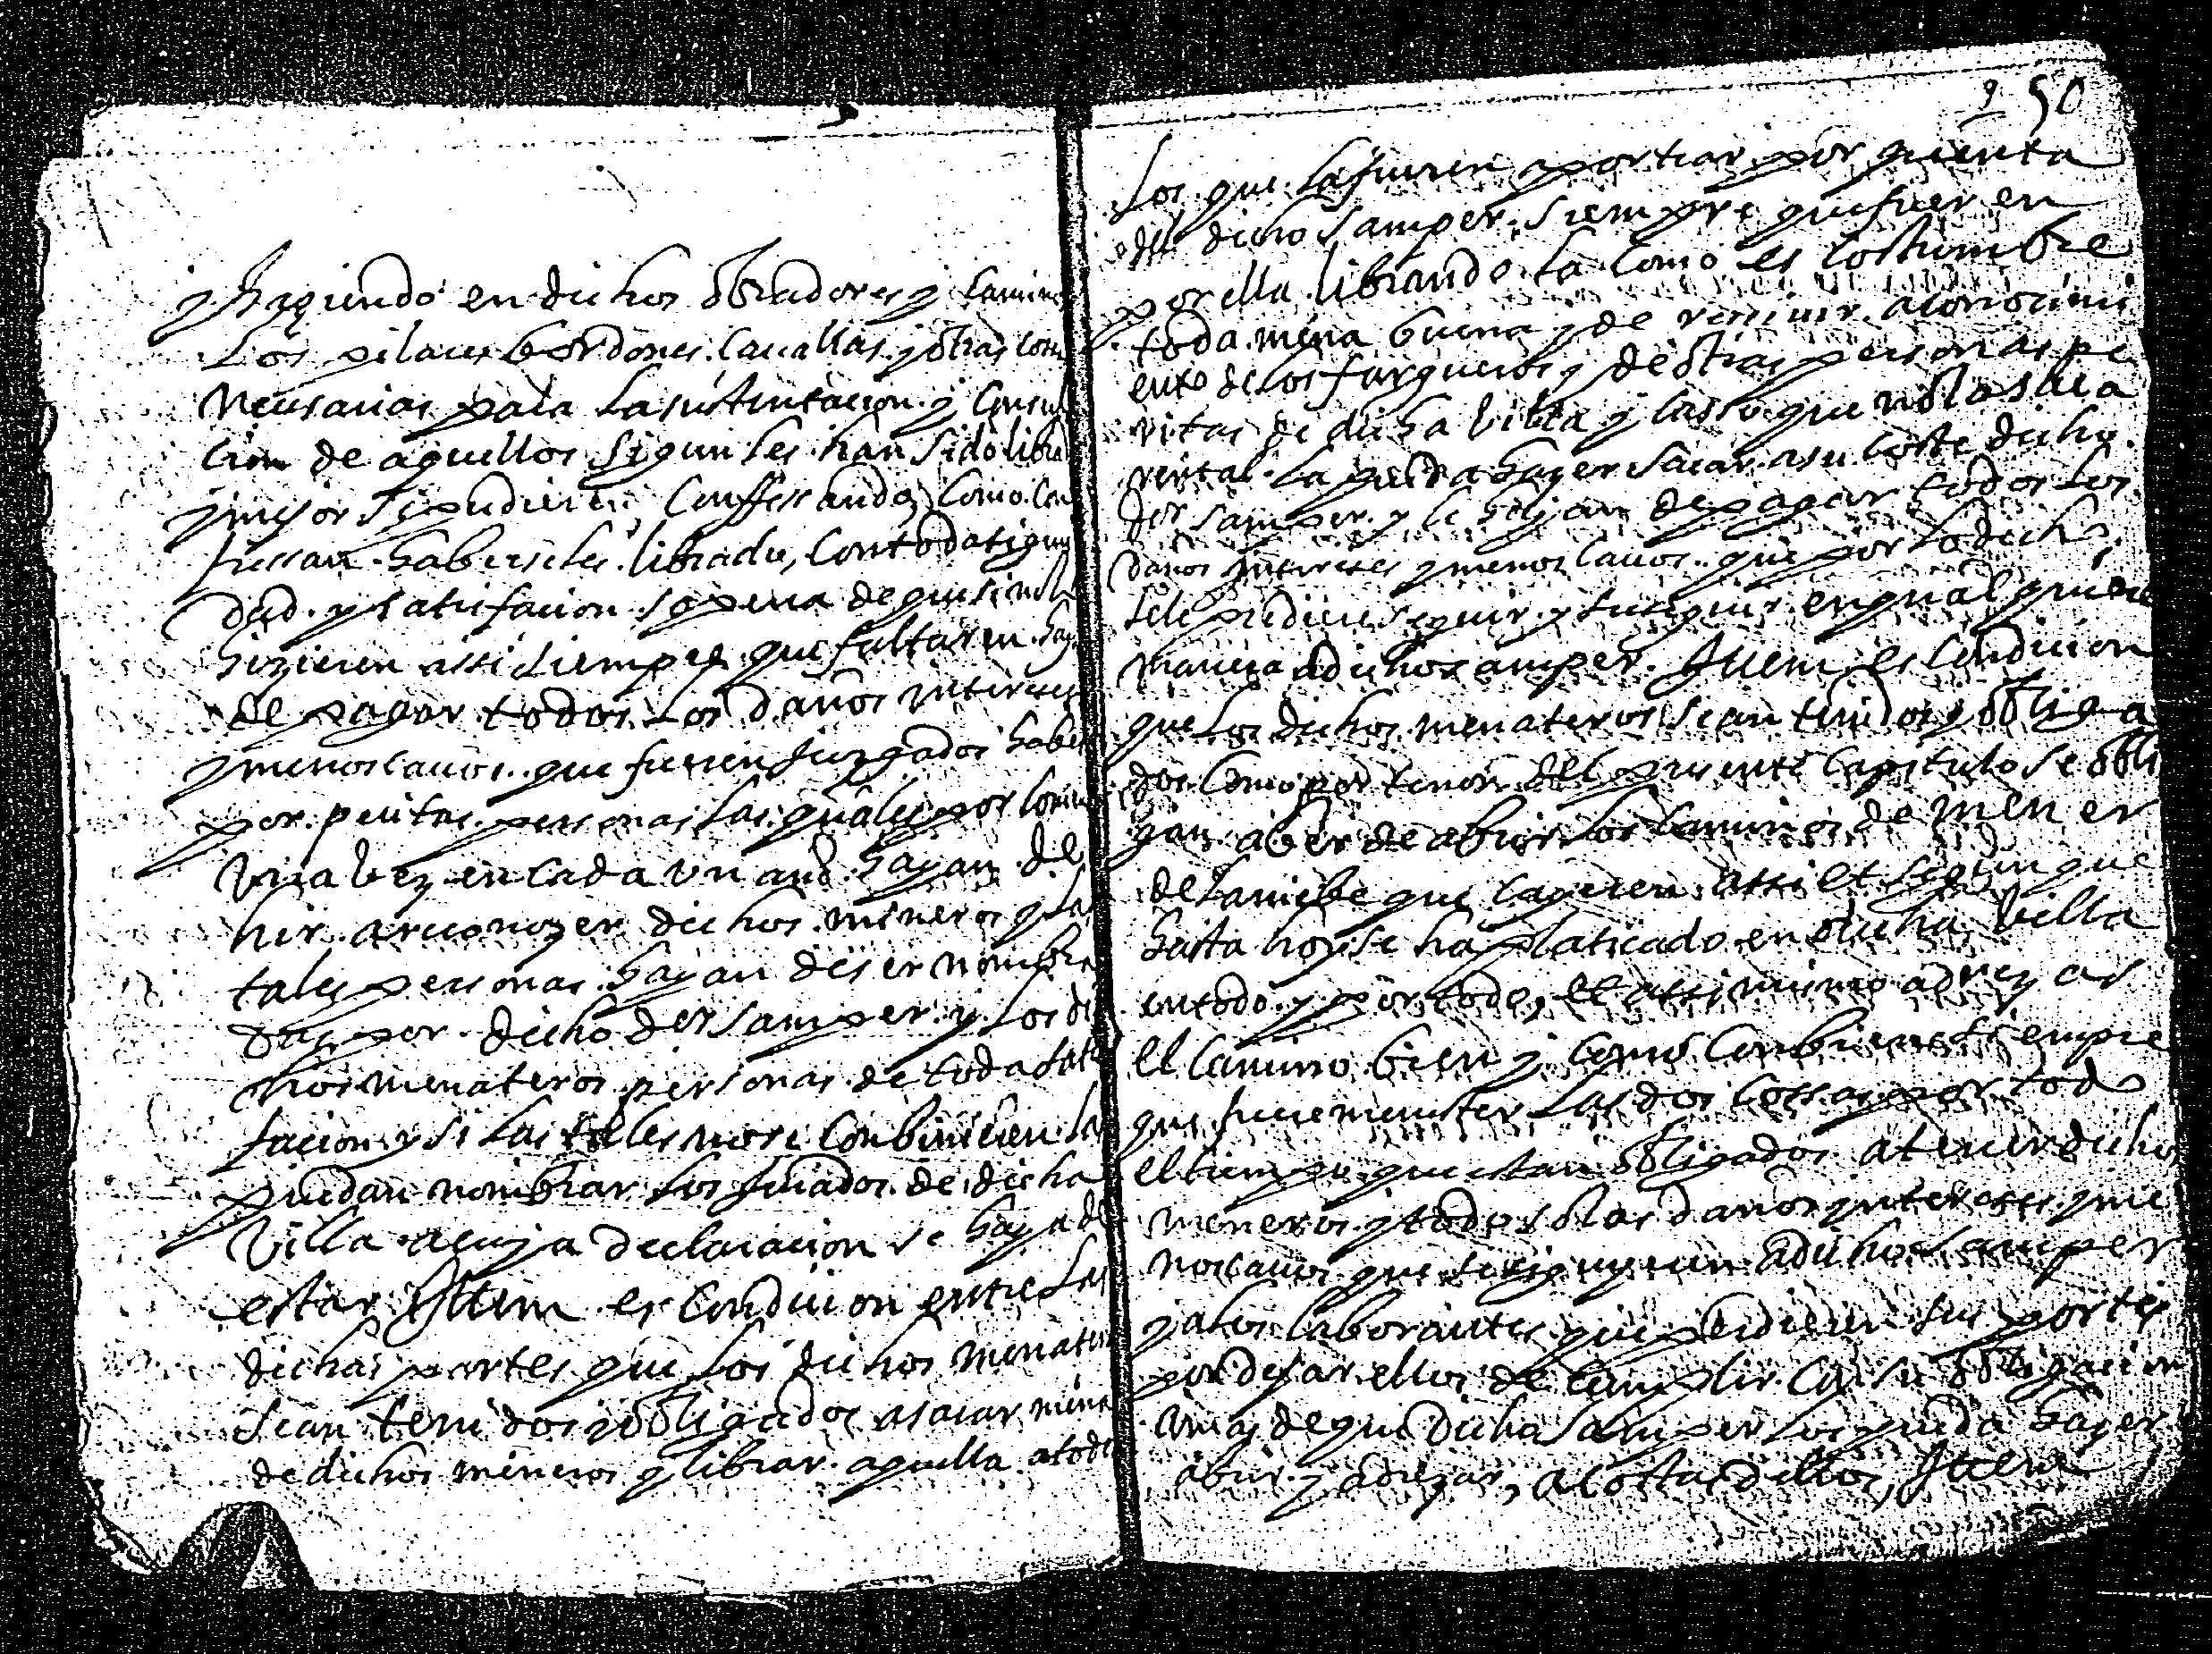 y haziendo en dichos obradores y camin
Los pilares bordones cavallas y otras coss
necesarias para la sustentacion y
cion de aquellos sigun les han sido librad
y mejor si pudieren Confessando, Como Con
fiessan haberseles librado, Con toda sigun
dad y satisfacion so pena de que si no lo
hizieren assi siempre que faltaren hay
de pagar todos los daños intereses
y menoscavos que fueren Juzgados haber
por peritas personas las quales por
Una bez en cada un año hayan de
hir a reconozer dichos mineros y las
tales personas hayan de ser nombra
das por dicho der samper y los di
chos menateros personas de toda satis
facion y si las tales no se conbinieren las
puedan nombrar los Jurados de dicha
Villa a cuya declaracion se haya de
estar Ittem es condicion entre las
dichas partes que los dichos menater
sean tenidos y obligados a sacar mena
de dichos mineros y librar aquella a todos
250
Los que la fueren a portear por quenta
del dicho Samper siempre que fueren
por ella librando la como es costumbre
toda mena buena y de recivir a conocimi
ento de los fargueros y de otras personas pe
ritas de dicha Villa y casso que no la saca
ren tal la pueda hazer sacar a su coste dicho
der samper y le hayan de pagar todos los
daños intereses y menoscavos que por lo dicho
se le pudiere seguir y en qual quiere
manera a dicho samper. Ittem es condicion
que los dichos menateros sean tenidos y obliga
dos como por tenor del presente capitulo se obli
gan a ber de abrir los caminos de mener
de la niebe que cayeren assi et segun que
hasta hoy se ha platicado en dicha Villa
en todo y por todo, et assi mismo adrezar
el camino bien y como conbiene siempre
que fuere menester las dos cossas por todo
el tiempo que estan obligados a tener dichos
meneros y todos los daños intereses y me
noscavos que se siguyeren a dicho samper
y a los laborantes que perdieren sus portes
por dejar ellos de cumplir con su obligacion
mas de que dicho samper los pueda hazer
abrir y adrezar, a costas dellos, Ittem